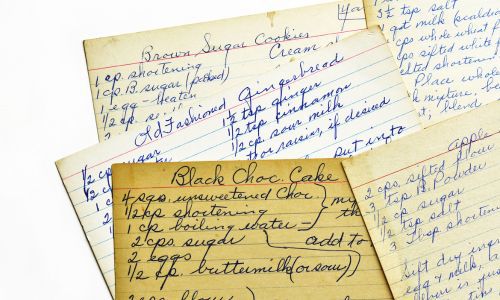 Brown Sugar Cookies
Cream
1 cp. shortening
1 cp. B. sugar (packed)
1 egg - beaten
1/2 cp.
3 1/2 tsp salt
1 got milk (scalded
cps whole wheat f
cps sifted white
shortening
Place whole
mixture. be
blend
Old Fashioned Gingerbread
1/2 cp sugar
1/2 c
1 c
1/2
2
1/2 tsp ginger
1/2 tsp cinnamon
1/2 cp sour milk
or raisins, if desired
Put into
Black Choc. Cake
4 sqs. unsweetened Choc.
1/2 cp shortening
1 cp boiling water
2 cps. sugar
2 eggs
1/2 cp. buttermilk (or sour)
add to
Apple
2 cps. sifted flour
tsp B. Powder
cp sugar
1/2 tsp salt
3 Tbsp shortening
Sift dry
egg & milk, a